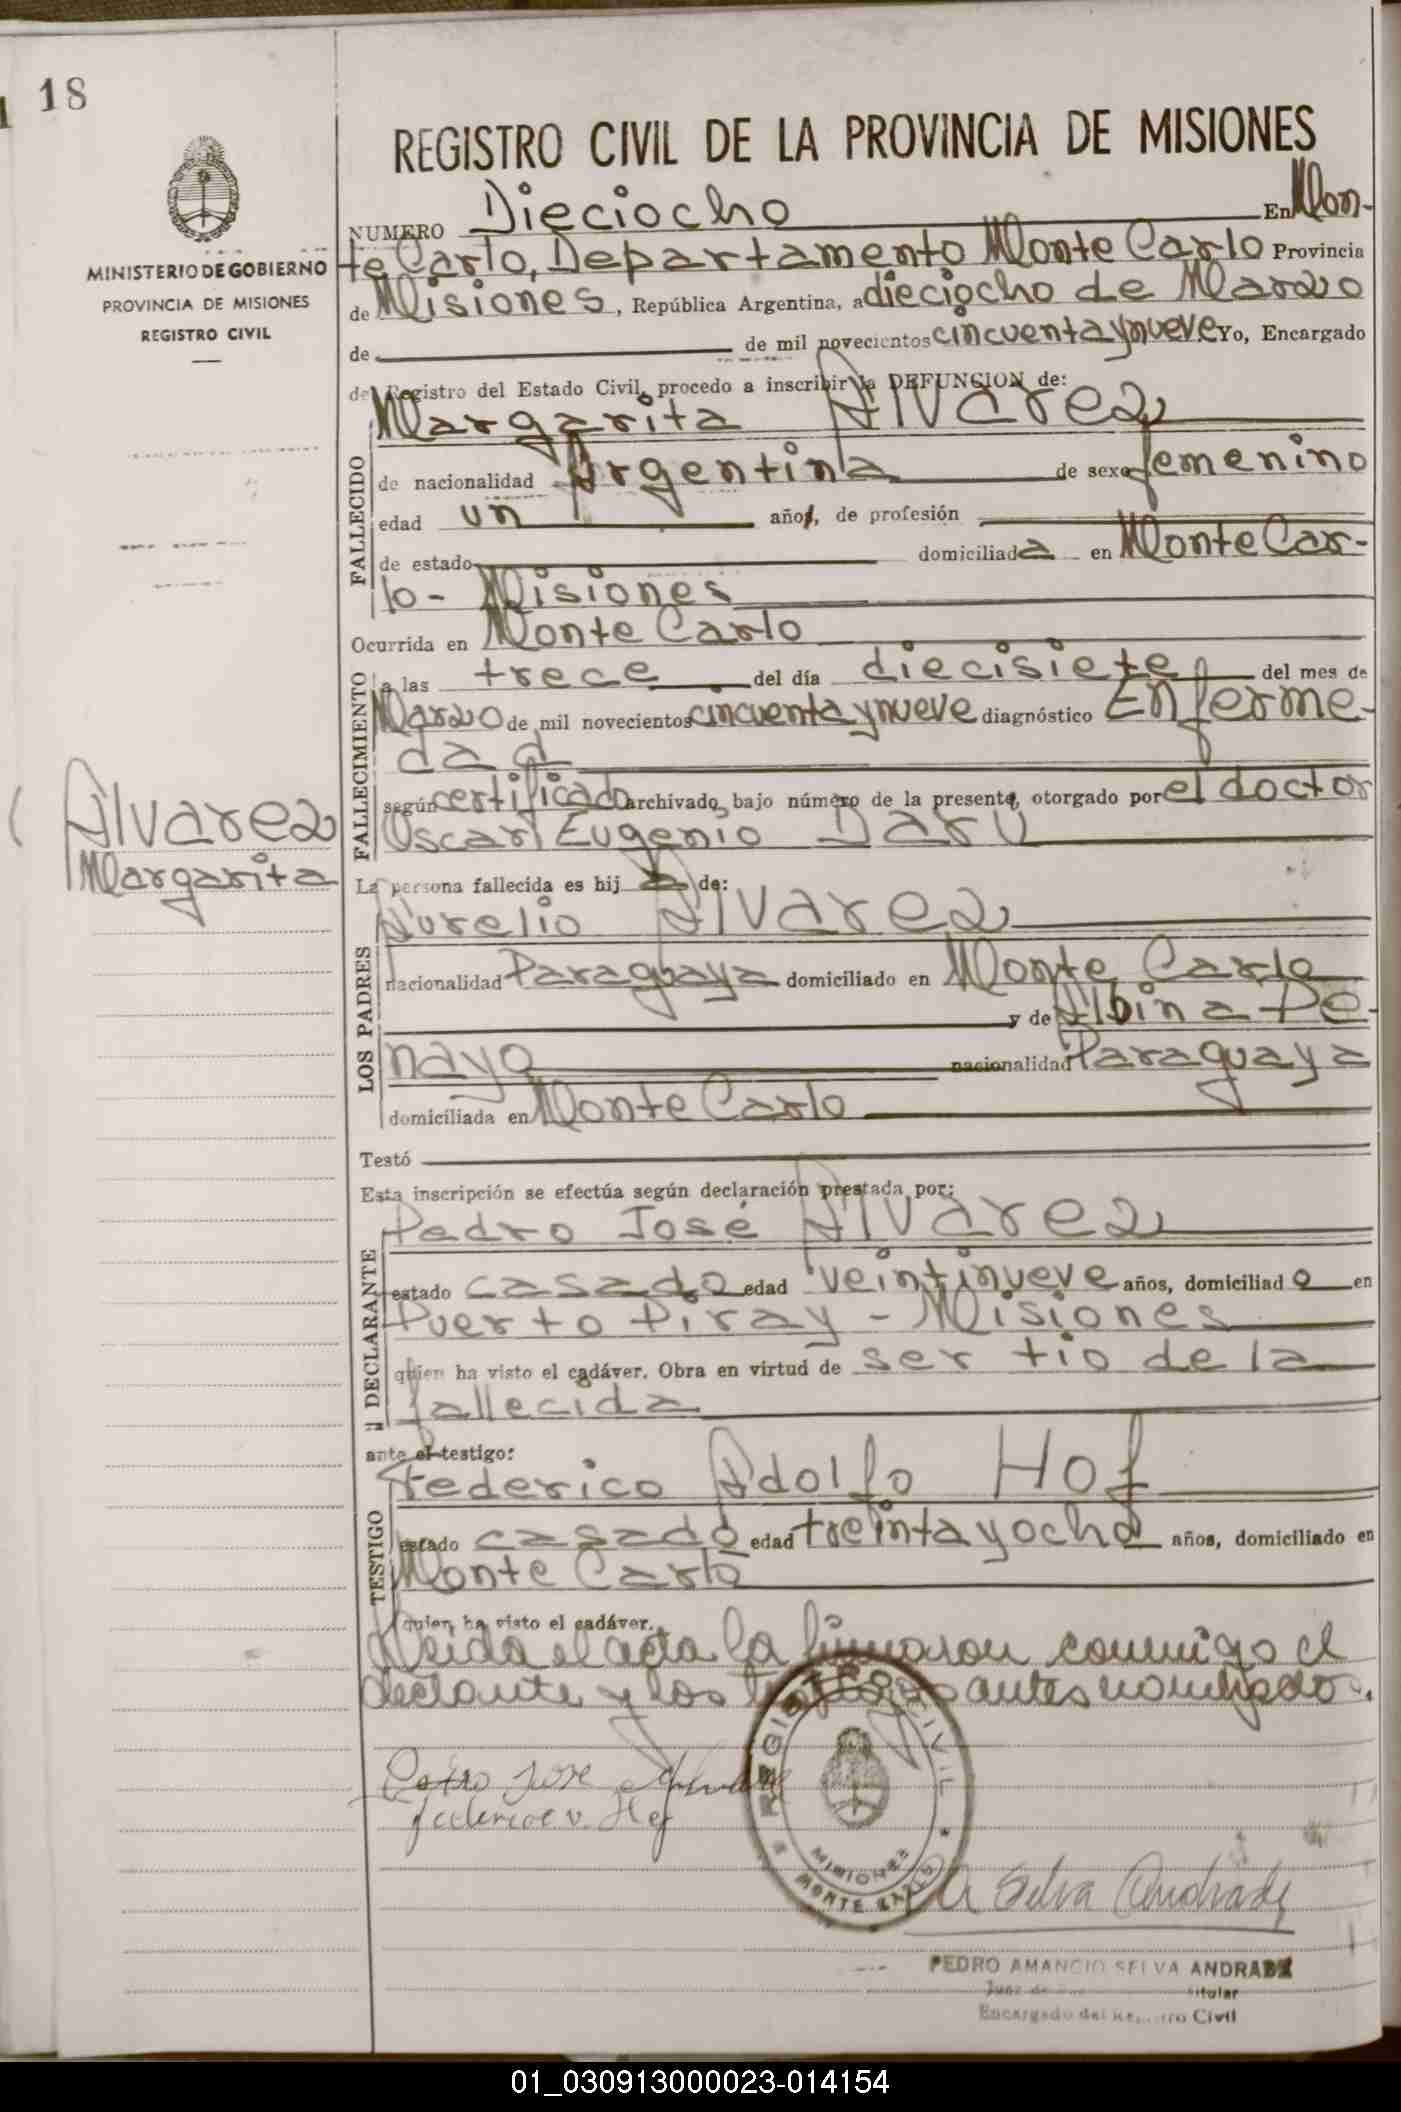 18
MINISTERIO DE GOBIERNO
PROVINCIA DE MISIONES
REGISTRO CIVIL
Alvarez
Margarita
REGISTRO CIVIL DE LA PROVINCIA DE MISIONES
NUMERO Dieciocho En Mon-
te Carlo, Departamento Monte Carlo Provincia
de Misiones, República Argentina, a dieciocho de Marzo
de de mil novecientos cincuenta y nueve Yo, Encargado
del Registro del Estado Civil, procedo a inscribir la DEFUNCION de:
Margarita Alvarez
FALLECIDO
de nacionalidad Argentina de sexo femenino
edad un año, de profesión
de estado domiciliada en Monte Car-
lo - Misiones
Ocurrida en Monte Carlo
FALLECIMIENTO
a las trece del día diecisiete del mes de
Marzo de mil novecientos cincuenta y nueve diagnóstico Enferme-
dad
según certificado archivado, bajo número de la presente, otorgado por el doctor
Oscar Eugenio Daru
La persona fallecida es hija de:
Aurelio Alvarez
LOS PADRES
nacionalidad Paraguaya domiciliado en Monte Carlo
y de Albina Pe-
nayo nacionalidad Paraguaya
domiciliada en Monte Carlo
Testó
Esta inscripción se efectúa según declaración prestada por:
Pedro José Alvarez
DECLARANTE
estado casado edad veintinueve años, domiciliado en
Puerto Piray - Misiones
quien ha visto el cadáver. Obra en virtud de ser tio de la
fallecida
ante el testigo:
Federico Adolfo Hof
TESTIGO
estado casado edad treinta y ocho años, domiciliado en
Monte Carlo
quien ha visto el cadáver.
Leida el acta la firmaron conmigo el
declante y los testigos antes nombrados.
Pedro Jose Alvarez
Federico v. Hof
REGISTRO CIVIL
MISIONES
MONTE CARLO
Selva Andrade
PEDRO AMANCIO SELVA ANDRADE
Juez de Titular
Encargado del Registro Civil
01_030913000023-014154